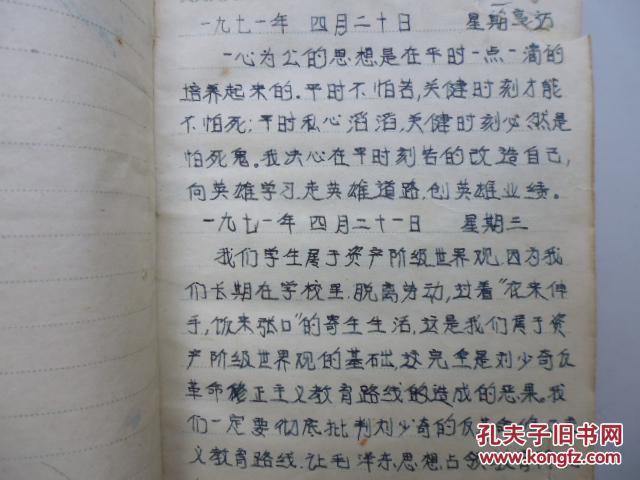 一九七一年 四月二十日 星期
一心为公的思想是在平时一点一滴的
培养起来的.平时不怕苦,关健时刻才能
不怕死;平时私心滔滔,关健时刻必然是
怕死鬼。我决心在平时刻苦的改造自己,
向英雄学习,走英雄道路,创英雄业绩。
一九七一年 四月二十一日 星期三
我们学生属于资产阶级世界观.因为我
们长期在学校里.脱离劳动,过着"衣来伸
手,饭来张口"的寄生生活,这是我们属于资
产阶级世界观的基础,这完全是刘少奇反
革命修正主义教育路线的造成的恶果。我
们一定要彻底批判刘少奇的反革命修
义教育路线.让毛泽东思想占领教育
孔夫子旧书网
www.kongfz.com